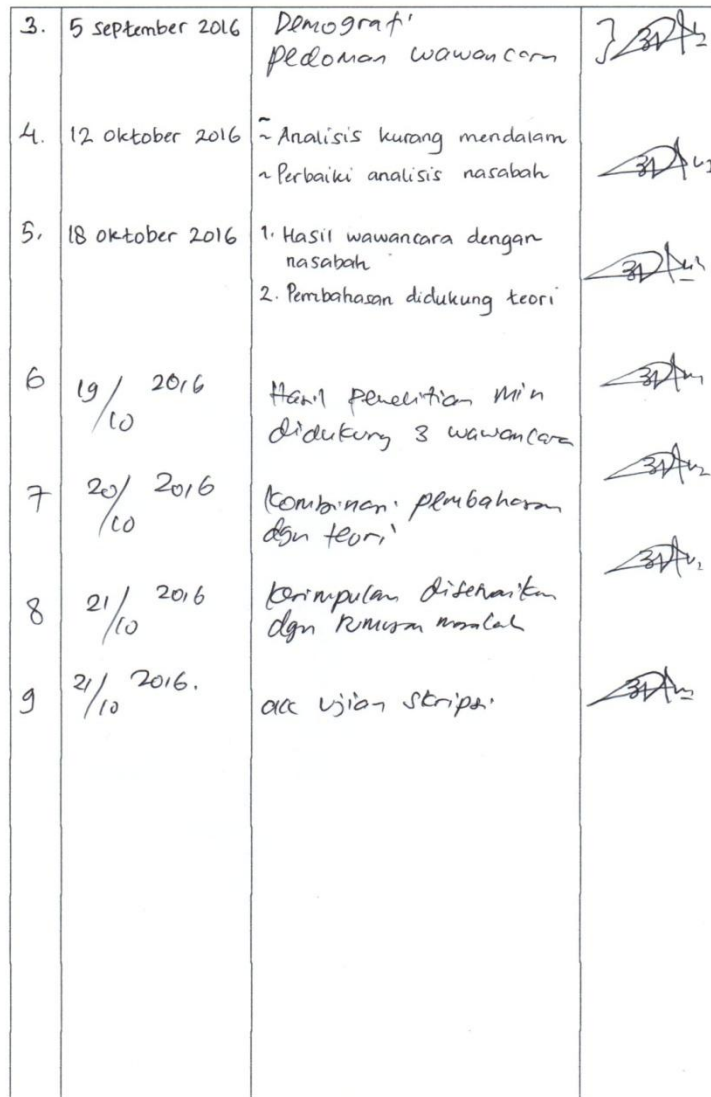 3. 5 September 2016 Demografi
Pedoman wawancara
4. 12 Oktober 2016 ~ Analisis kurang mendalam
~ Perbaiki analisis nasabah
5. 18 Oktober 2016 1. Hasil wawancara dengan
nasabah
2. Pembahasan didukung teori
6 19/10 2016 Hasil penelitian min
didukung 3 wawancara
7 20/10 2016 Kombinasi pembahasan
dgn teori
8 21/10 2016 Kesimpulan disesuaikan
dgn rumusan masalah
9 21/10 2016. acc ujian skripsi